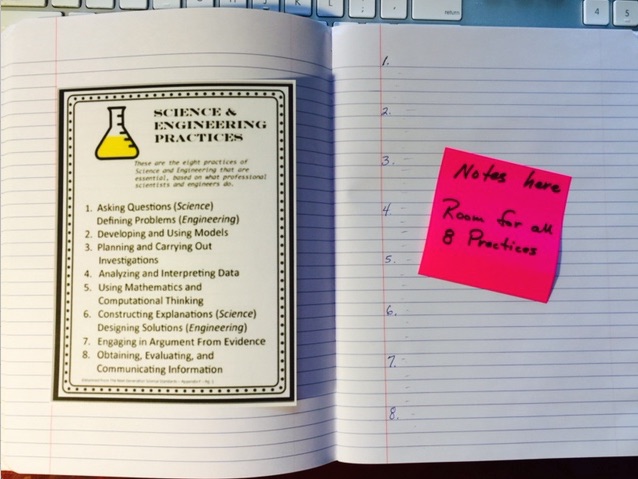 return
4
5
SCIENCE &
ENGINEERING
PRACTICES
These are the eight practices of
Science and Engineering that are
essential, based on what professional
scientists and engineers do.
1. Asking Questions (Science)
Defining Problems (Engineering)
2. Developing and Using Models
3. Planning and Carrying Out
Investigations
4. Analyzing and Interpreting Data
5. Using Mathematics and
Computational Thinking
6. Constructing Explanations (Science)
Designing Solutions (Engineering)
7. Engaging in Argument From Evidence
8. Obtaining, Evaluating, and
Communicating Information
1.
2.
3.
4
5.
6.
7.
8.
Notes here
Room for all
8 Practices